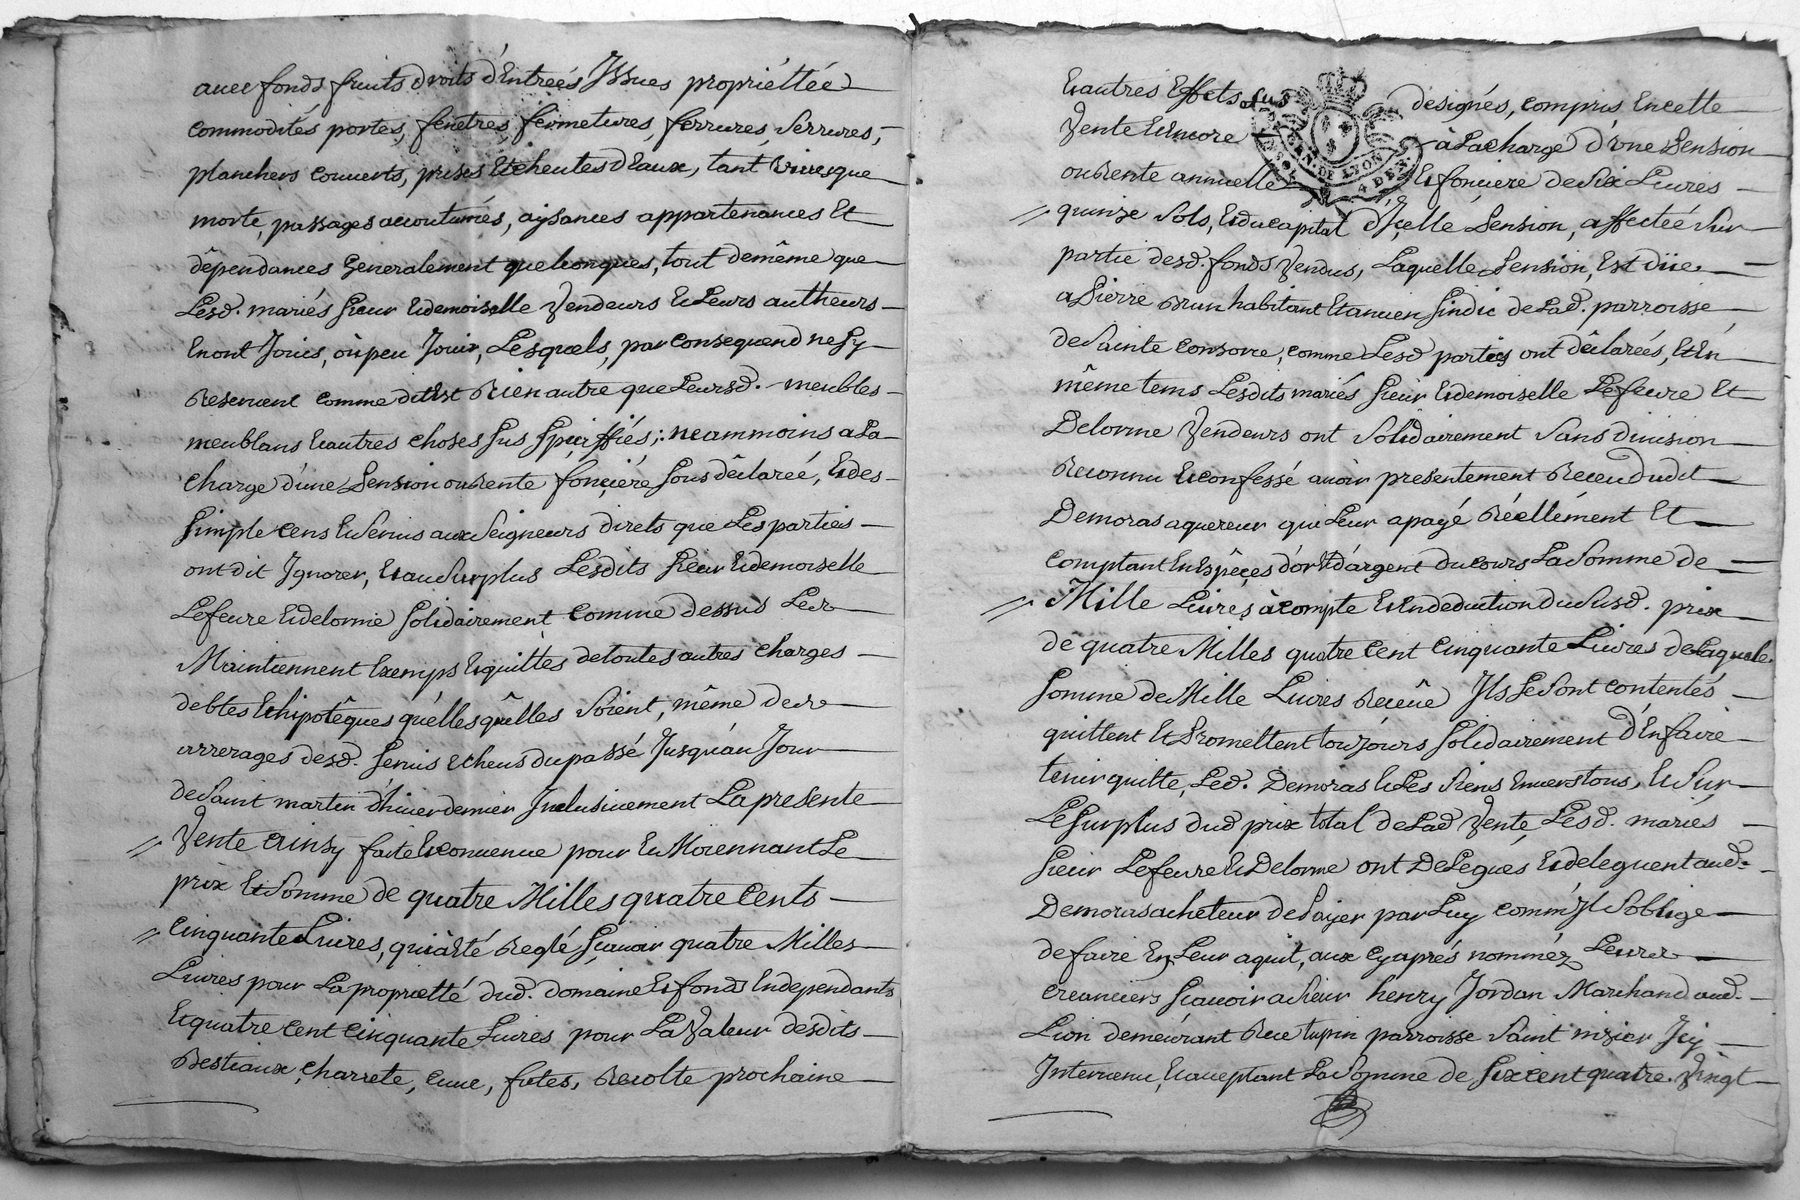 avec fonds fruits droits d'Entreés Issues propriéttée
commodités portes, fenêtres, fermetures, ferrures, Serrures,
planchers couverts, prises Et cheutes d'Eaux, tant vives que
morte, passages accoutumés, aysances appartenances Et
dêpendances Generalement quelconques, tout demême que
Lesd. mariés Sieur Et demoiselle Vendeurs Et Leurs autheurs
En ont Jouies, oùpeu Jouir, Lesquels, par consequend ne Sy
Reservent comme dit Est Rien autre que Leursd. meubles
meublans Et autres choses Sus Spéciffiés; neammoins a La
charge d'une Pension ou Rente fonçiére Sous déclareé, Et des
Simple cens Et Servis aux Seigneurs direts que Les parties
ont dit Ignorer, Et au Surplus Lesdits Sieur Et demoiselle
Lefevre Et delorme Solidairement comme dessus Les
Maintiennent Exemps Et quittes de toutes autres charges
debtes Et hipotêques qu'elles qu'elles Soient, même des
arrerages desd. Servis Echeus du passé Jusqu'au Jour
de Saint martin d'hiver dernier Inclusivement La presente
Vente Ainsy faite Et convenue pour Et Moïennant Le
prix Et Somme de quatre Milles quatre Cents
Cinquante Livres, qui à Eté Reglé Sçavoir quatre Milles
Livres pour La proprietté dud. domaine Et fonds Independants
Et quatre Cent Cinquante Livres pour La Valeur desdits
Bestiaux, Charrete, Cuve, futes, Recolte prochaine
Et autres Effets sus designés, compris En cette
Vente Et Encore à La charge d'une Pension
ou Rente annuelle Et fonciere de Six Livres
GEN. DE LYON 4 DE
quinze Sols, Et du capital d'Içelle Pension, affecteé Sur
partie desd. fonds Vendus, Laquelle Pension, Est düe
a Pierre Brun habitant Et ancien Sindic de Lad. parroisse
de Sainte Consorce, comme Lesd parties ont déclareés, Et En
même tems Lesdits mariés Sieur Et demoiselle Lefevre Et
Delorme Vendeurs ont Solidairement Sans division
Reconnu Et confessé avoir presentement Receu dudit
Demoras aquereur qui Leur a payé Réellément Et
comptant En Espêçes d'or Et d'argent du cours La Somme de
Mille Livres à compte Et En deduction du Susd. prix
de quatre Milles quatre Cent Cinquante Livres de Laquele
Somme de Mille Livres Receüe Ils Se Sont contentés
quittent Et Promettent toujours Solidairement d'En faire
tenir quitte, Led. Demoras Et Les Siens Envers tous, Et Sur
Le Surplus dud prix total de Lad Vente, Lesd. mariés
Sieur Lefevre Et Delorme ont Delegués Et deleguent aud.
Demoras acheteur de Payer par Luy comm'Il S'oblige
de faire En Leur aquit, aux Cyaprés nommez Leurs
Creanciers Scavoir a Sieur henry Jordan Marchand aud.
Lion demeurant Rüe tupin parroisse Saint nizier Icy
Intervenu, Et acceptant La Somme de Six cent quatre Vingt